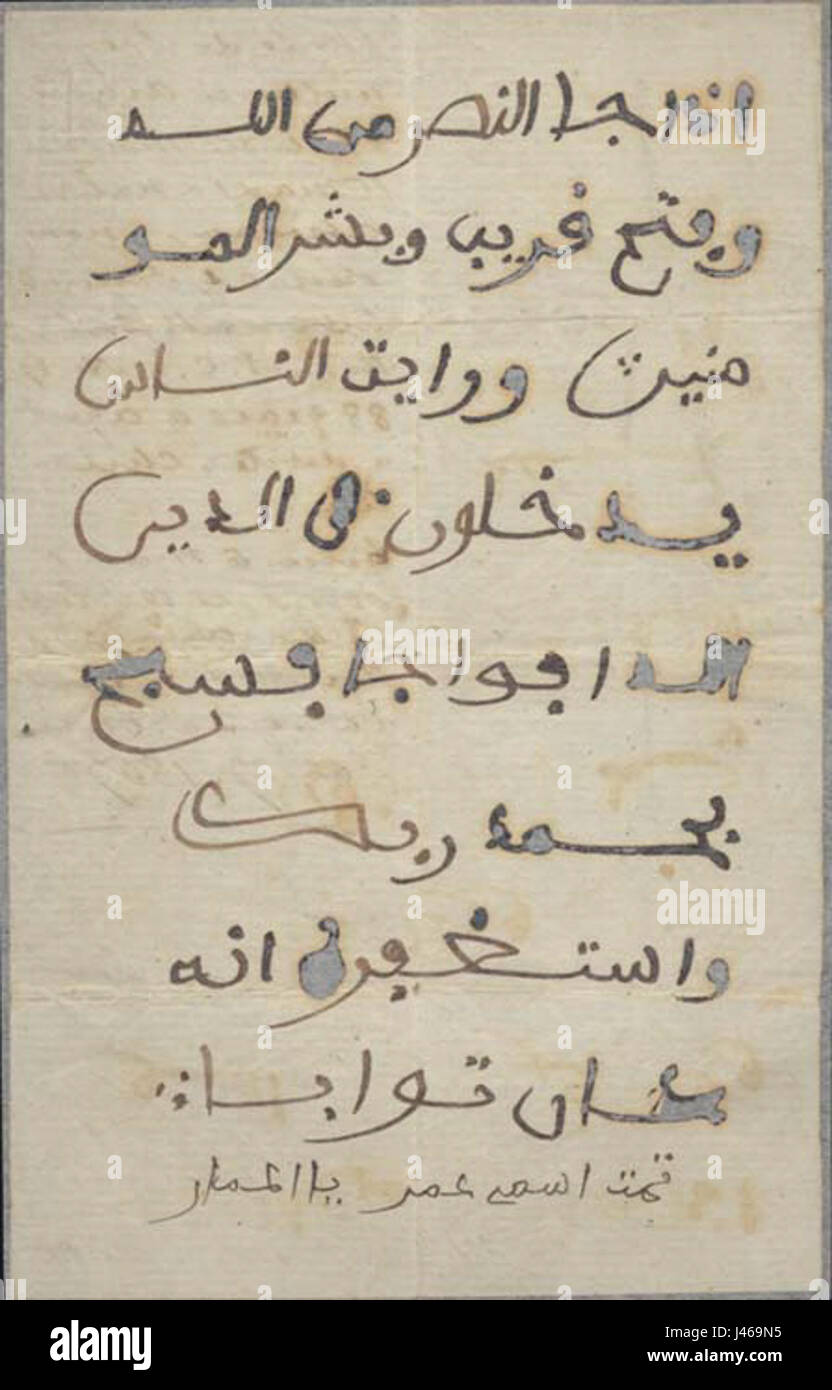 اذا جا النصر من الله
وفتح قريب وبشر المو
منين ورايت الناس
يدخلون في الدين
الله افواجا فسبح
بحمد ربك
واستغفره انه
كان توابا
تمت اسمي عمر
alamy
J469N5
www.alamy.com